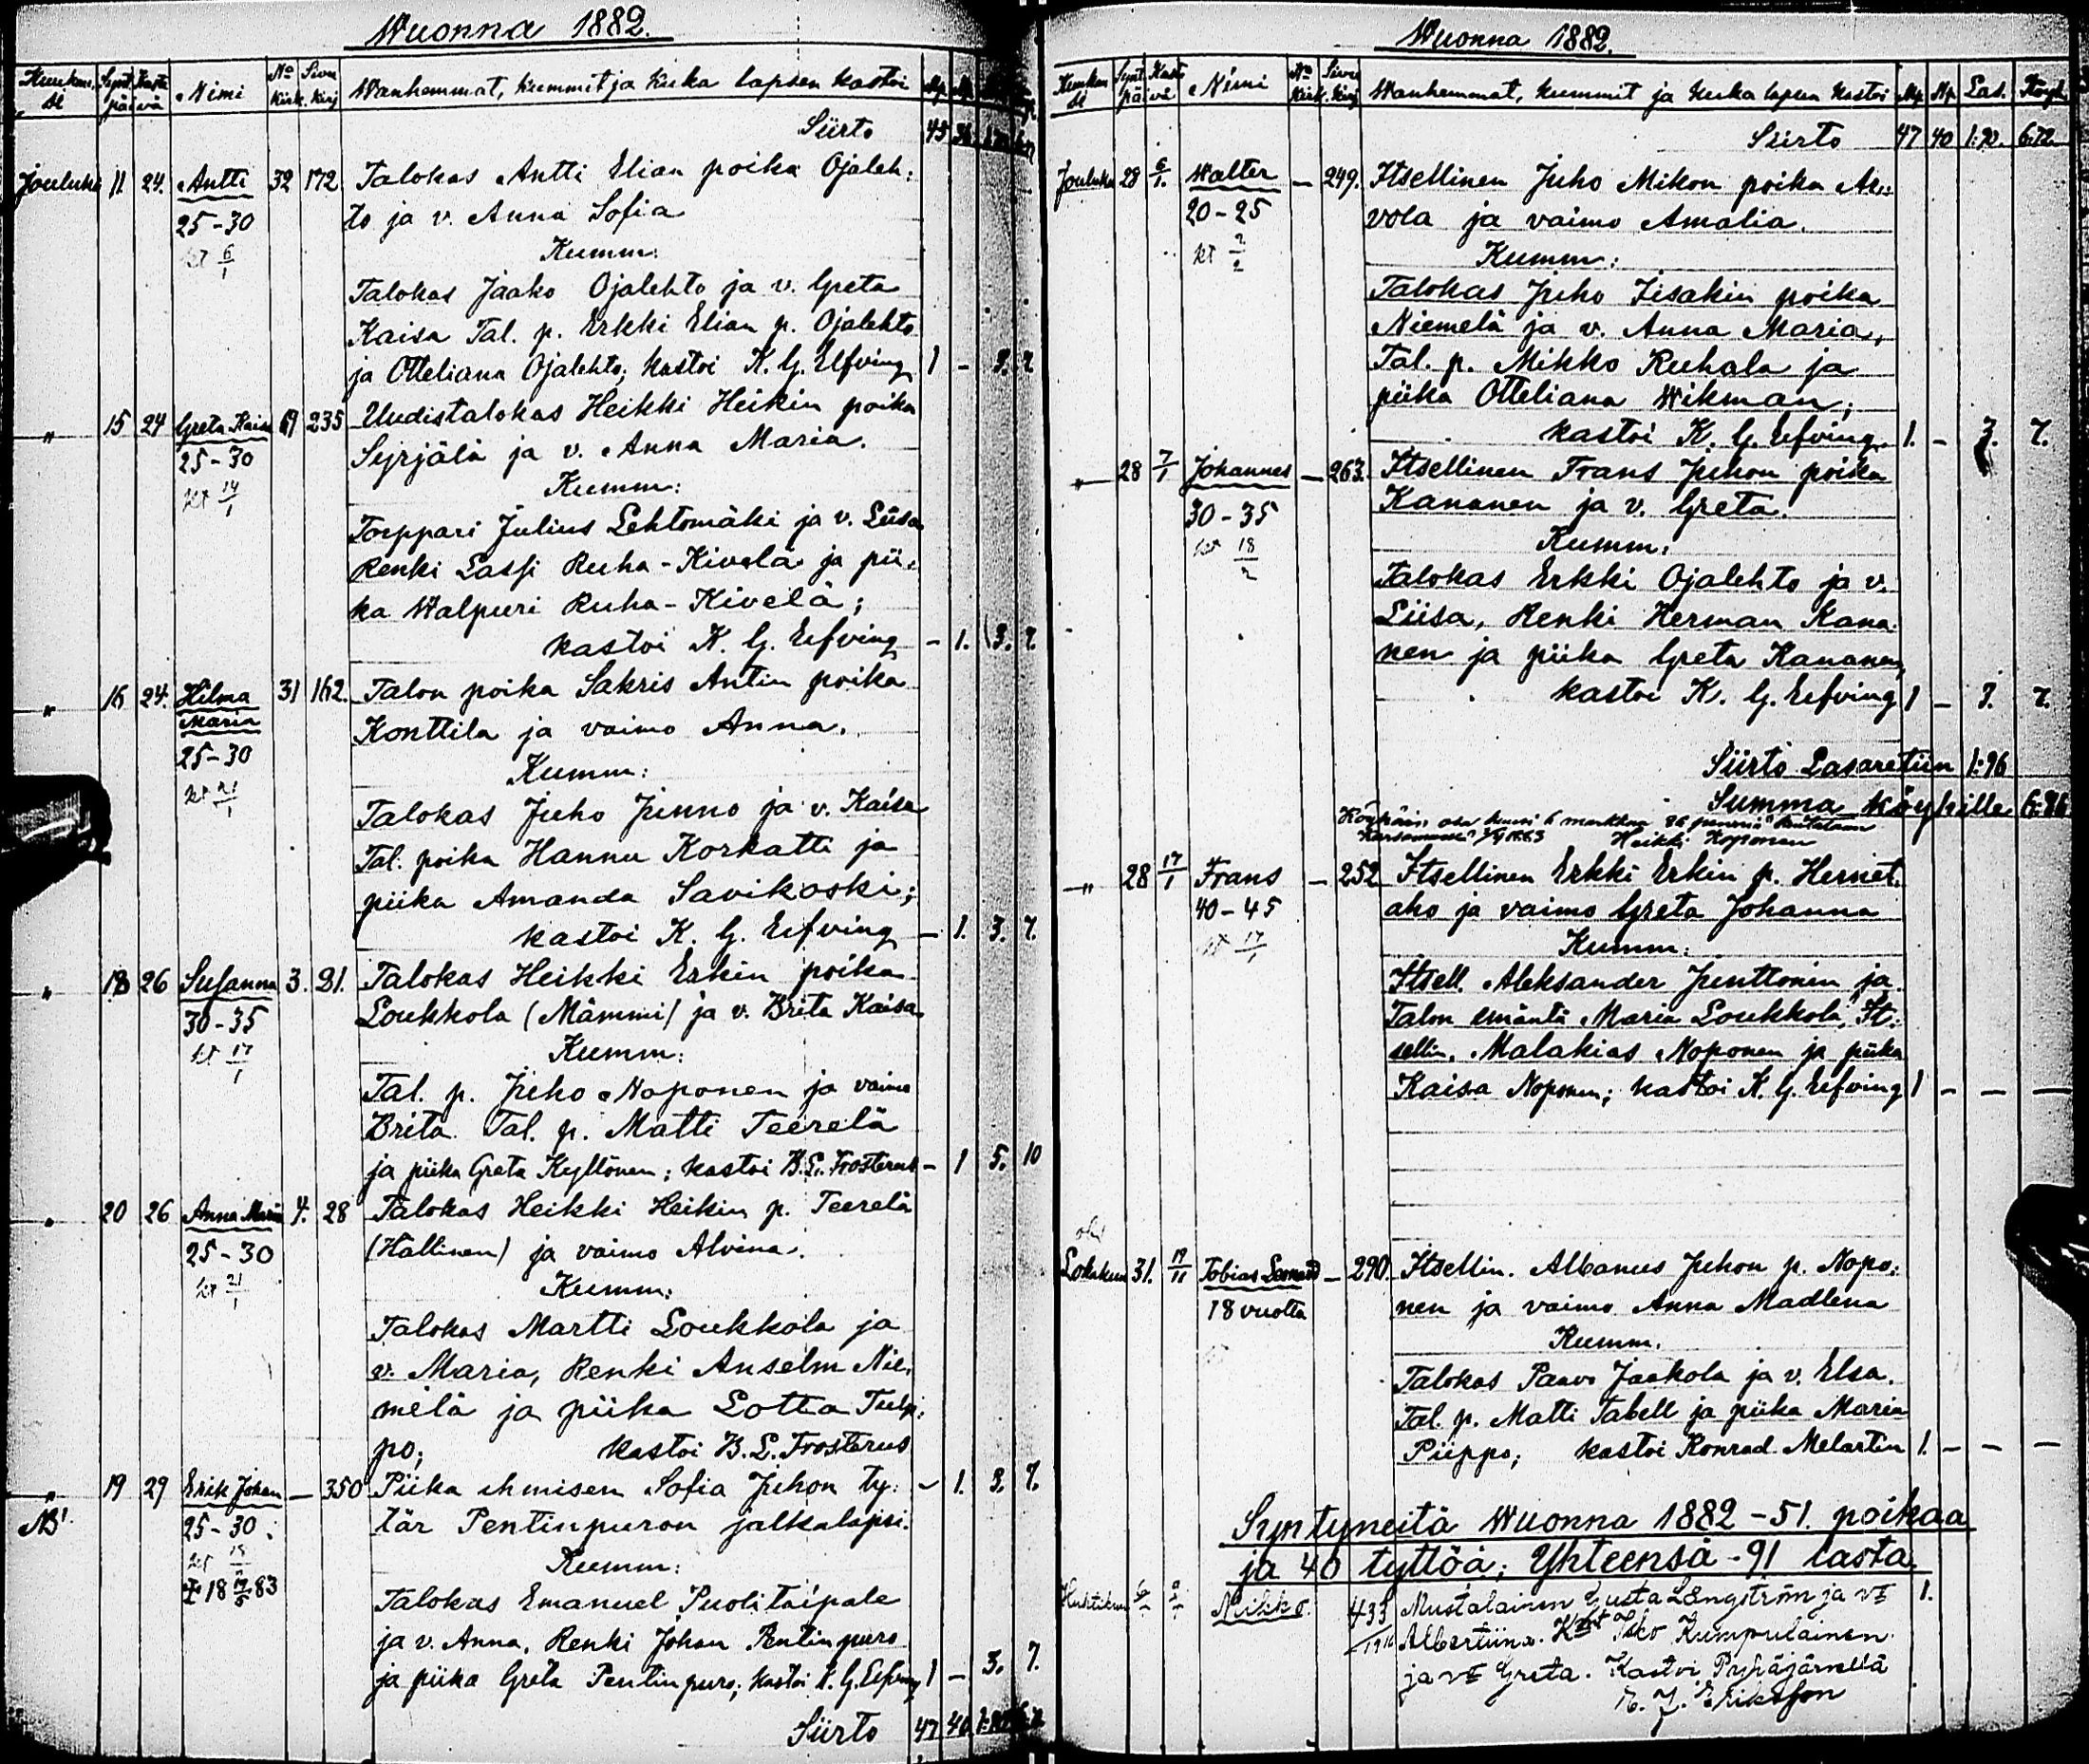 Wuonna 1882.
Kuukau- si Synt. Kaste päivä Nimi No kirk. Sivu kirj. Wanhemmat, kummit ja kuka lapsen kastoi Mp. Np.
Siirto 45
Jouluku 11 24. Antti 32 172 Talokas Antti Elian poika Ojaleh:
25-30 to ja v. Anna Sofia
kt 6/1 Kumm:
Talokas Jaako Ojalehto ja v. Greta
Kaisa Tal. p. Erkki Elian p. Ojalehto
ja Otteliana Ojalehto; kastoi K. G. Elfving 1 - 3. 7.
" 15 24 Greta Kaisa 235 Uudistalokas Heikki Heikin poika
25-30 Syrjälä ja v. Anna Maria.
kt 14/1 Kumm:
Torppari Julius Lehtomäki ja v. Liisa
Renki Lassi Ruha-Kivelä ja pii-
ka Walpuri Ruha-Kivelä;
kastoi K. G. Elfving - 1. 3. 7.
" 16 24. Hilma 31 162. Talon poika Sakris Antin poika
Maria Konttila ja vaimo Anna.
25-30 Kumm:
kt 21/1
Talokas Juho Junno ja v. Kaisa
Tal. poika Hannu Korkatti ja
piika Amanda Savikoski;
kastoi K. G. Elfving - 1. 3. 7.
" 18 26 Susanna 3. 31. Talokas Heikki Erkin poika
30-35 Loukkola (Mämmi) ja v. Brita Kaisa.
kt 17/1 Kumm:
Tal. p. Juho Noponen ja vaimo
Brita Tal. p. Matti Teerelä
ja piika Greta Kyllönen; kastoi B. L. Frosterus - 1 5. 10
" 20 26 Anna Maria 4. 28 Talokas Heikki Heikin p. Teerelä
25-30 (Hallinen) ja vaimo Alvina.
kt 21/1 Kumm:
Talokas Martti Loukkola ja
v. Maria, Renki Anselm Nie-
melä ja piika Lotta Tulp:
po; kastoi B. L. Frosterus - 1. 3. 7.
" 19 29 Erik Johan - 350 Piika ihmisen Sofia Juhon ty:
NB! 25-30 tär Pentinpuron jalkalapsi.
kt Kumm:
18 83 Talokas Emanuel Puolitaipale
ja v. Anna, Renki Johan Pentinpuro
ja piika Greta Pentinpuro; kastoi K. G. Elfving 1 - 3. 7.
Siirto 47 40
Wuonna 1882.
Kuukau- si Synt. Kaste päivä Nimi No kirk. Sivu kirj. Wanhemmat, kummit ja kuka lapsen kastoi Mp. Np. Las. Köyh.
Siirto 47 40 1:90. 6:72.
Jouluku 28 6/1. Walter - 249. Itsellinen Juho Mikon poika Au:
20-25 vola ja vaimo Amalia.
kt 2/2 Kumm:
Talokas Juho Iisakin poika
Niemelä ja v. Anna Maria,
Tal. p. Mikko Ruhala ja
piika Otteliana Wikman;
kastoi K. G. Elfving. 1. - 3. 7.
" 28 7/1 Johannes - 263. Itsellinen Frans Juhon poika
30-35 Kananen ja v. Greta.
kt 18/2 Kumm:
Talokas Erkki Ojalehto ja v.
Liisa, Renki Herman Kana-
nen ja piika Greta Kananen,
kastoi K. G. Elfving 1 - 3. 7.
Siirto Lasarettiin 1:96
Summa köyhille 6:86
Köyhäin osa kuusi 6 markkaa 86 penniä kuitataan
Heikki Koponen
" 28 17/1 Frans - 252 Itsellinen Erkki Erkin p. Hernet-
40-45 aho ja vaimo Greta Johanna
kt 17/1 Kumm:
Itsell. Aleksander Junttonen ja
Talon emäntä Maria Loukkola, It:
sellin. Malakias Noponen ja piika
Kaisa Noponen; kastoi K. G. Elfving 1 - - -
Lokakuu 31. 19/11 Tobias Leonard - 290. Itsellin. Albanus Juhon p. Nopo:
18 vuotta nen ja vaimo Anna Madlena
Kumm.
Talokas Paavo Jaakola ja v. Elsa.
Tal. p. Matti Tabell ja piika Maria
Piippo; kastoi Konrad Melartin 1. - - -
Syntyneitä Wuonna 1882 - 51. poikaa
ja 40 tyttöä; Yhteensä - 91 lasta
Huhtikuu Mikko. 433 Mustalainen Gusta Längström ja vo 1.
Albertiina. Isko Kumpulainen
ja vo Greta. Kastoi Pyhäjärvellä
Eriksson